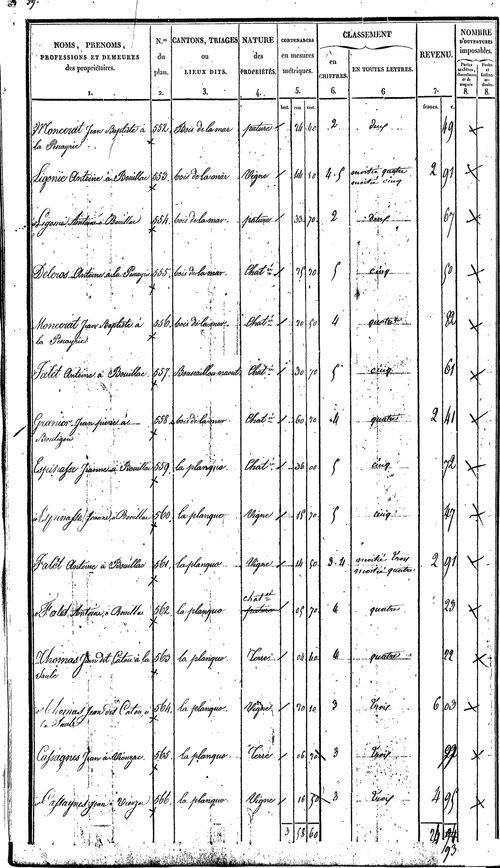 NOMS, PRÉNOMS,
PROFESSIONS ET DEMEURES
des propriétaires.
1.
N.os
du
plan.
2.
CANTONS, TRIAGES
ou
LIEUX DITS.
3.
NATURE
des
PROPRIÉTÉS.
4.
CONTENANCES
en mesures
métriques.
5.
CLASSEMENT
en
CHIFFRES.
6.
EN TOUTES LETTRES.
6
REVENU.
7.
NOMBRE
D'OUVERTURES
imposables.
8. 8.
francs. c.
Moncorat Jean Baptiste à 552. Bois de la mar pature 24 40 2 deux 49
la Penayrie
Ligonie Antoine à Bouillac 553. bois de la mar Vigne 44 50 4.5 moitié quatre 2 91
moitié cinq
Ligonie Antoine à Bouillac 554. bois de la mar pature 33 70 2 deux 67
Delcros Antoine à la Penayrie 555. bois de la mar Chat. 25 20 5 cinq 50
Moncorat Jean Baptiste à 556. bois de la mar Chat. 20 50 4 quatre 82
la Penayrie
Falét Antoine à Bouillac 557. Chat. 30 70 5 cinq 61
Jean pierre à 558. bois de la mar Chat. 60 20 4 quatre 2 41
Espinasse Jeanne à Bouillac 559. la planque Chat. 36 00 5 cinq 72
Espinasse Jeanne à Bouillac 560. la planque Vigne 15 70 5 cinq 47
Falét Antoine à Bouillac 561. la planque Vigne 14 50 3.4 moitié trois 2 91
moitié quatre
Falét Antoine à Bouillac 562. la planque chat. pature 05 70 4 quatre 23
Thomas Jean dit Catou à la 563 la planque Terre 04 40 4 quatre 22
Saule
Thomas Jean dit Catou à 564. la planque Vigne 20 10 3 trois 6 03
la Saule
Cassagnes Jean à 565. la planque Terre 06 20 3 trois
Cassagnes Jean à 566. la planque Vigne 16 50 3 trois 4 95
3 58 60
93